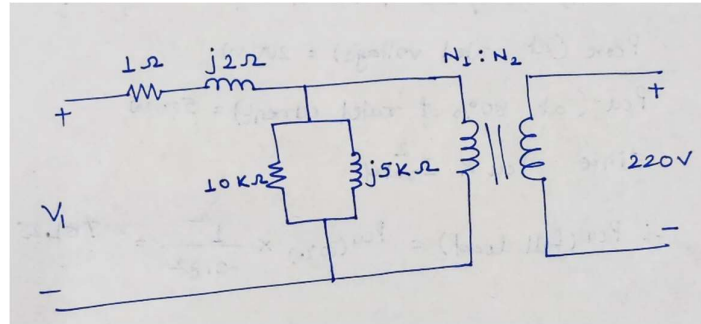 1Ω
j2Ω
N₁ : N₂
+
+
10KΩ
j5KΩ
220V
V₁
-
-